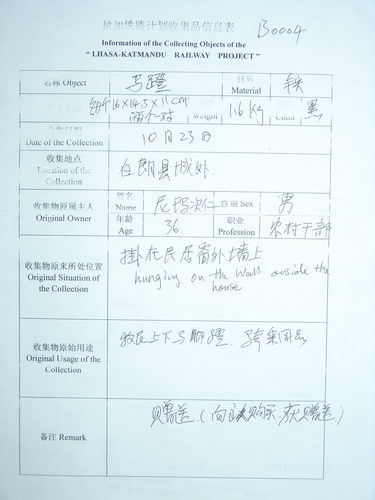 拉加铁路计划收集品信息表
B0004
Information of the Collecting Objects of the
" LHASA-KATMANDU RAILWAY PROJECT "
名称 Object 马蹬 材质 Material 铁
每个16×14.5×11cm 两个一对 Weight 1.6 kg Color 黑
收集日期
Date of the Collection 10月23日
收集地点
Location of the
Collection
白朗县城外.
收集物原属主人
Original Owner
姓名
Name 尼玛次仁 性别 Sex 男
年龄
Age 36 职业
Profession 农村干部
收集物原来所处位置
Original Situation of
the Collection
掛在民居窗外墙上
hunging on the wall ouside the
house
收集物原始用途
Original Usage of the
Collection
牧民上下马脚蹬. 骑乘用品
备注 Remark
赠送.(向主人购买,获赠送)